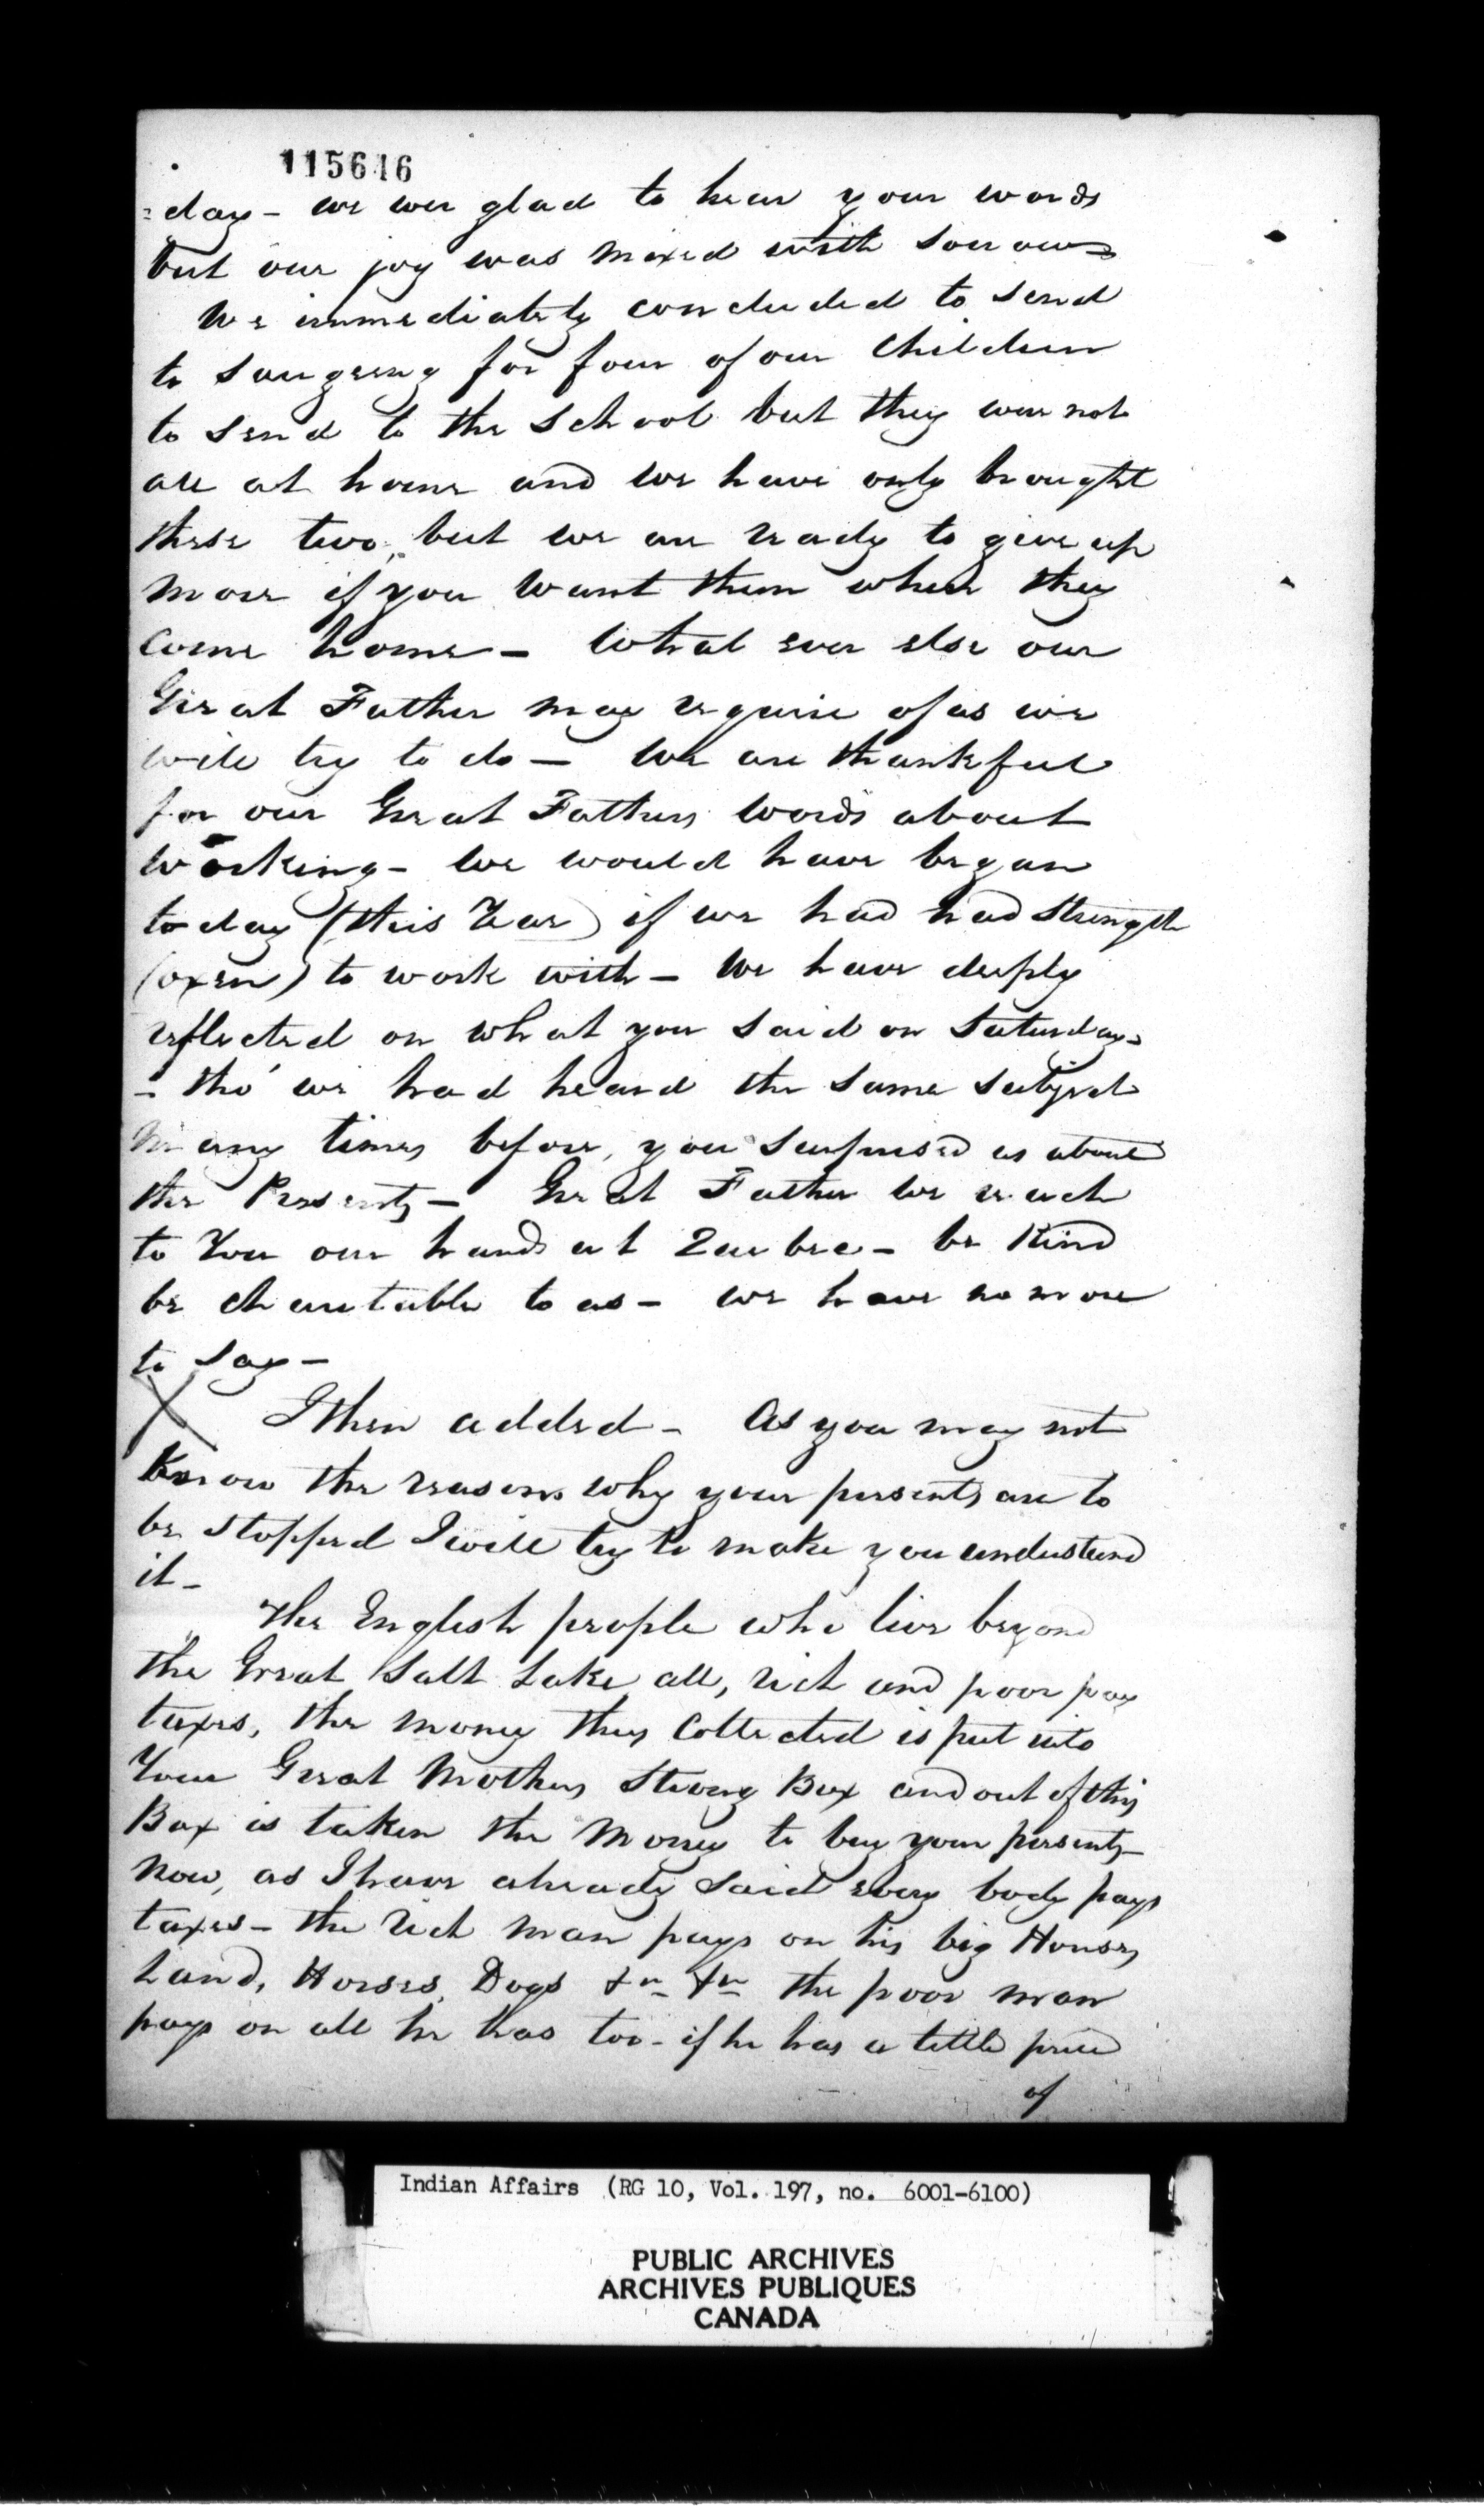 115616
=day - we wer glad to hear your words
but our joy was mixed with sorrow -
We immediately concluded to send
to Saugeeng for four of our Children
to send to the School but they wer not
all at home and we have only brought
these two, but we are ready to give up
more if you want them when they
come home - What ever else our
Great Father may require of us we
will try to do - We are thankful
for our Great Fathers words about
working - we would have began
to day (this Year) if we had had strength
(oxen) to work with - We have deeply
reflected on what you said on Saturday -
- tho' we had heard the same subject
Many times before, you surprised us about
the Presents - Great Father we reach
to You our hands at Quebec - be Kind
be charitable to us - we have no more
to say -
X I then added - As you may not
Know the reasons why your presents are to
be stopped I will try to make you understand
it -
The English people who live beyond
the Great Salt Lake all, rich and poor pay
taxes, the money thus Collected is put into
Your Great Mothers Strong Box and out of this
Box is taken the Money to buy your presents -
Now, as I have already said every body pays
taxes - the rich man pays on his big House,
Land, Horses, Dogs &c &c the poor man
pays on all he has too - if he has a little piece
of
Indian Affairs (RG 10, Vol. 197, no. 6001-6100)
PUBLIC ARCHIVES
ARCHIVES PUBLIQUES
CANADA